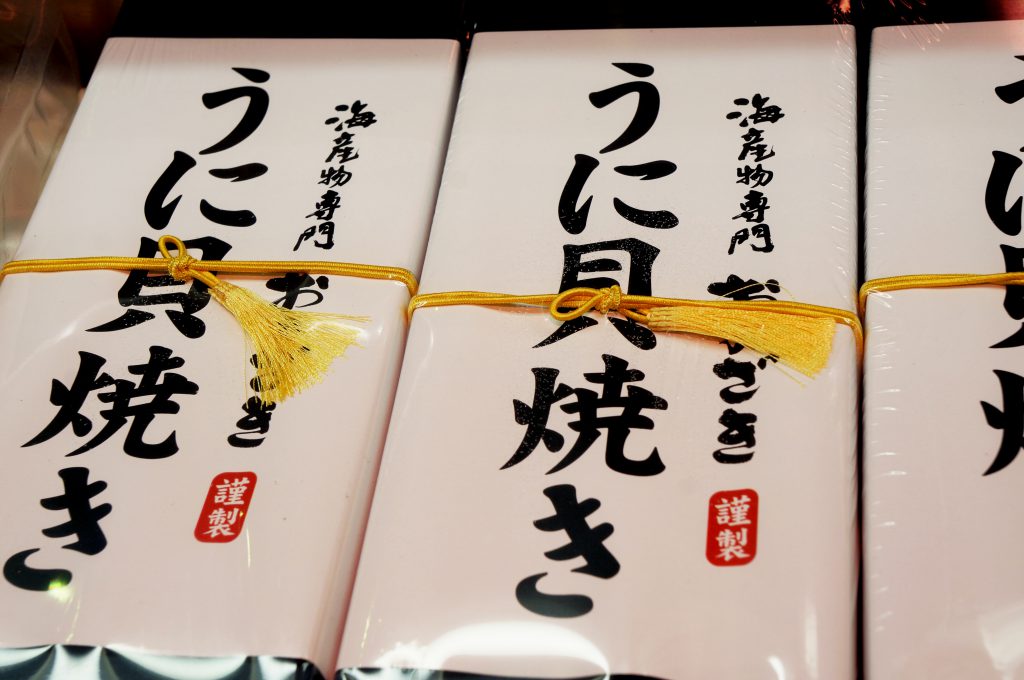 海産物専門 おのざき
謹製
うに貝焼き
海産物専門 おのざき
謹製
うに貝焼き